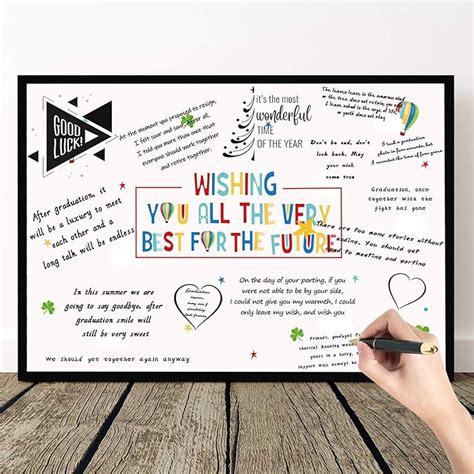 GOOD
LUCK!
At the moment you proposed to resign,
I felt sour and sour. After all,
I told you more than once that
everyone should work together
and retire together.
it's the most
wonderful
TIME
OF THE YEAR
Don't be sad, don't
look back. May
your wish
come true
After graduation, it
will be a luxury to meet
each other and a
long talk will be endless
WISHING
YOU ALL THE VERY
BEST FOR THE FUTURE
Graduation, once
together with the
fight has gone
There are too many stories without
ending. You should get
used to meeting and parting
In this summer we are
going to say goodbye, after
graduation smile will
still be very sweet
Graduation
season, may
On the day of your parting, if you
were not able to be by your side,
I could not give you my warmth, I could
only leave my wish, and wish you
We should get together again anyway.
Friends, goodbye!